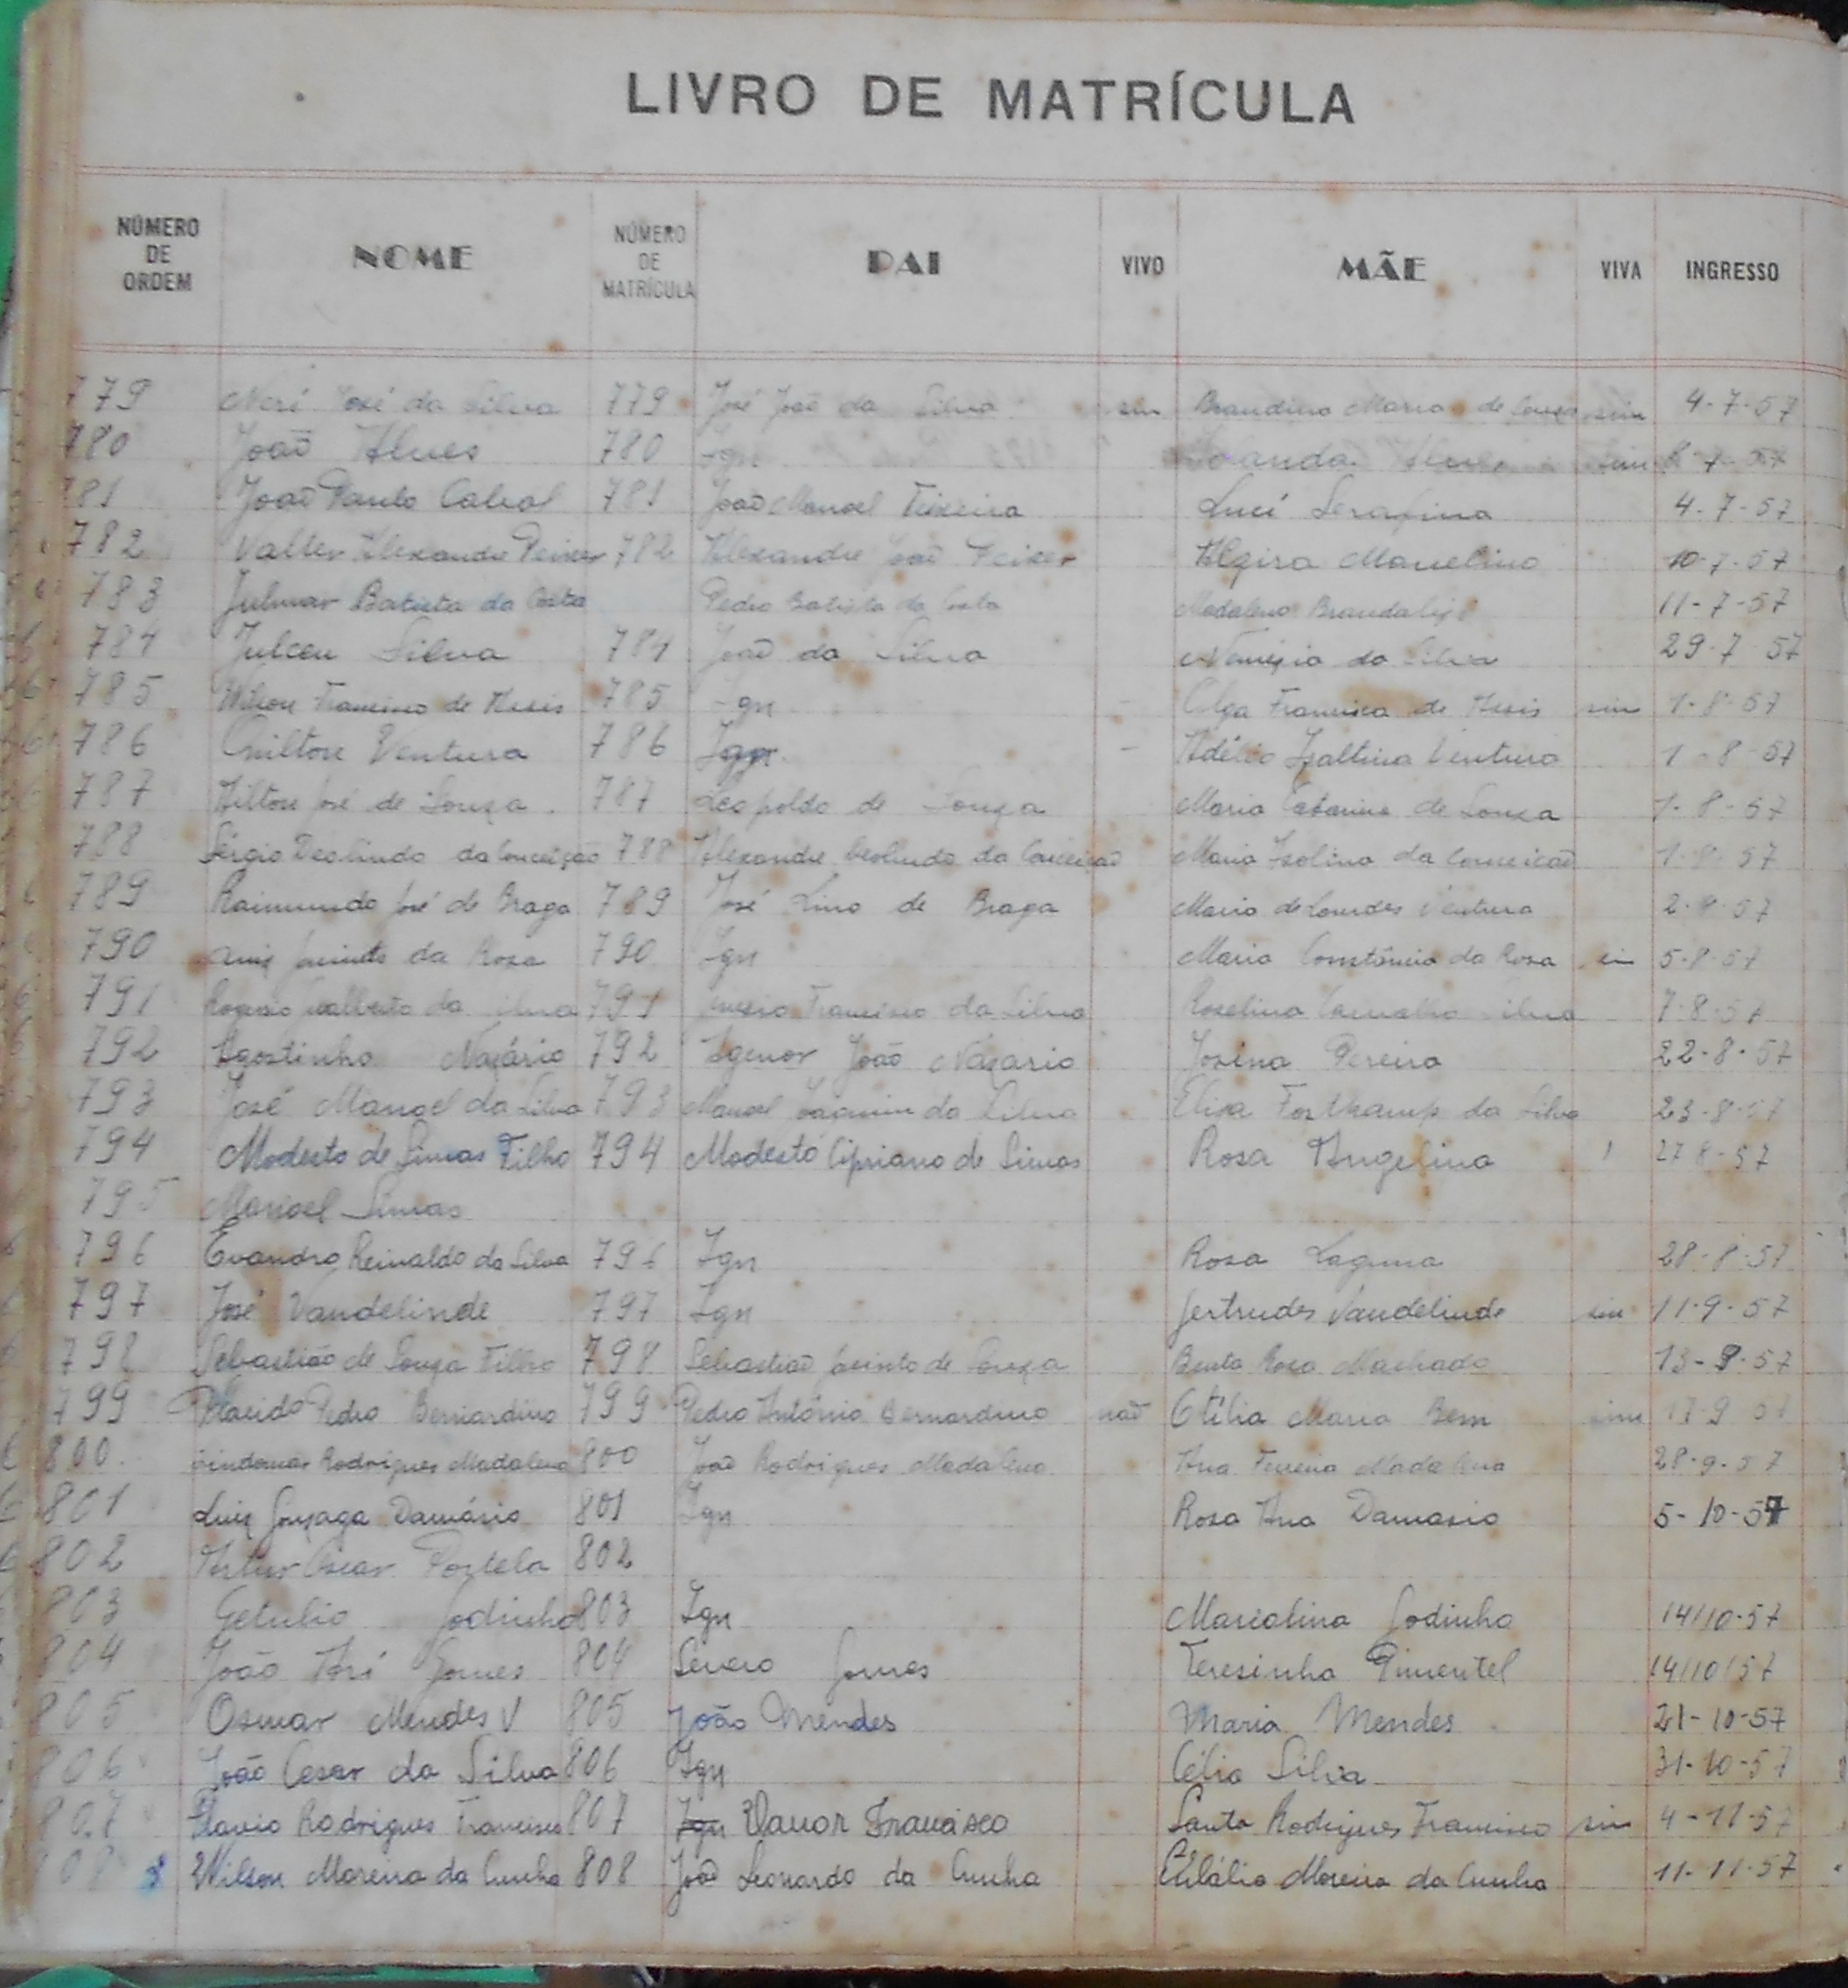 LIVRO DE MATRÍCULA
NÚMERO DE ORDEM NOME NÚMERO DE MATRÍCULA PAI VIVO MÃE VIVA INGRESSO
779 Neri José da Silva 779 José João da Silva sim Brandina Maria de Souza sim 4-7-57
780 João Alves 780 Ign Alves sim 7-57
781 João Paulo Cabral 781 João Manoel Teixeira Luci Serafina 4-7-57
782 Valter Alexandre Peixer 782 Alexandre João Peixer Alzira Marcelino 10-7-57
783 Julmar Batista da Costa Pedro Batista da Costa Madalena 11-7-57
784 Julceu Silva 784 João da Silva Nemezia da Silva 29-7-57
785 Wilson Francisco de Assis 785 Ign - Olga Francisca de Assis sim 1-8-57
786 Ventura 786 Ign - Adélia Isaltina Ventura 1-8-57
787 Ailton José de Souza 787 Leopoldo de Souza Maria Catarina de Souza 1-8-57
788 Sérgio Deolindo da Conceição 788 Alexandre Deolindo da Conceição Maria Isolina da Conceição 1-8-57
789 Raimundo José de Braga 789 José Lino de Braga Maria de Lourdes Ventura 2-8-57
790 Jacinto da Rosa 790 Ign Maria Constância da Rosa sim 5-8-57
791 Rogerio da Silva 791 Francisco da Silva Roselina Carvalho Silva 7-8-57
792 Agostinho Nazário 792 Agenor João Nazario Josina Pereira 22-8-57
793 José Manoel da Silva 793 Manoel Joaquim da Silva Elisa Fortkamp da Silva 23-8-57
794 Modesto de Simas Filho 794 Modesto Cipriano de Simas Rosa Angelina 27-8-57
795 Manoel Simas
796 Evandro Reinaldo da Silva 796 Ign Rosa Laguna 28-8-57
797 José Vandelinde 797 Ign Gertrudes Vandelinde sim 11-9-57
798 Sebastião de Souza Filho 798 Sebastião Jacinto de Souza Benta Rosa Machado 13-9-57
799 Placido Pedro Bernardino 799 Pedro Antônio Bernardino não Otília Maria Bem sim 17-9-57
800 Rodrigues Madalena 800 João Rodrigues Madalena Ana Ferreira Madalena 28-9-57
801 Luiz Gonzaga Damásio 801 Ign Rosa Ana Damasio 5-10-57
802 Artur Oscar Portela 802
803 Getulio Godinho 803 Ign Marcolina Godinho 14/10-57
804 João José Gomes 804 Severo Gomes Teresinha Pimentel 14/10/57
805 Osmar Mendes V 805 João Mendes Maria Mendes 21-10-57
806 João Cesar da Silva 806 Ign Célia Silva 31-10-57
807 Flavio Rodrigues Francisco 807 Ign Vanor Francisco Santa Rodrigues Francisco sim 4-11-57
808 Wilson Moreira da Cunha 808 João Leonardo da Cunha Eulália Moreira da Cunha 11-11-57